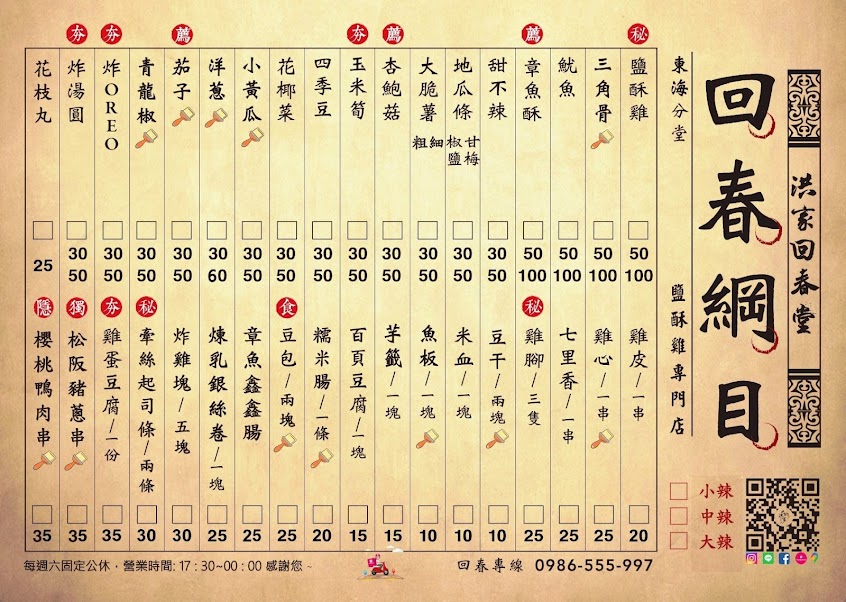 洪家回春堂
回春綱目
東海分堂
鹽酥雞專門店
秘 鹽酥雞 50 100
三角骨 50 100
魷魚 50 100
薦 章魚酥 50 100
甜不辣 30 50
地瓜條 甘梅 椒鹽 30 50
大脆薯 細 粗 30 50
薦 杏鮑菇 30 50
夯 玉米筍 30 50
四季豆 30 50
花椰菜 30 50
小黃瓜 30 50
洋蔥 30 60
薦 茄子 30 50
青龍椒 30 50
夯 炸OREO 30 50
夯 炸湯圓 30 50
花枝丸 25
雞皮/一串 20
雞心/一串 25
七里香/一串 25
秘 雞腳/三隻 25
豆干/兩塊 10
米血/一塊 10
魚板/一塊 10
芋籤/一塊 15
百頁豆腐/一塊 15
糯米腸/一條 20
食 豆包/兩塊 25
章魚鑫鑫腸 25
煉乳銀絲卷/一塊 25
炸雞塊/五塊 30
秘 牽絲起司條/兩條 30
夯 雞蛋豆腐/一份 35
獨 松阪豬蔥串 35
隱 櫻桃鴨肉串 35
小辣
中辣
大辣
每週六固定公休，營業時間: 17 : 30~00 : 00 感謝您 ~
回春專線 0986-555-997